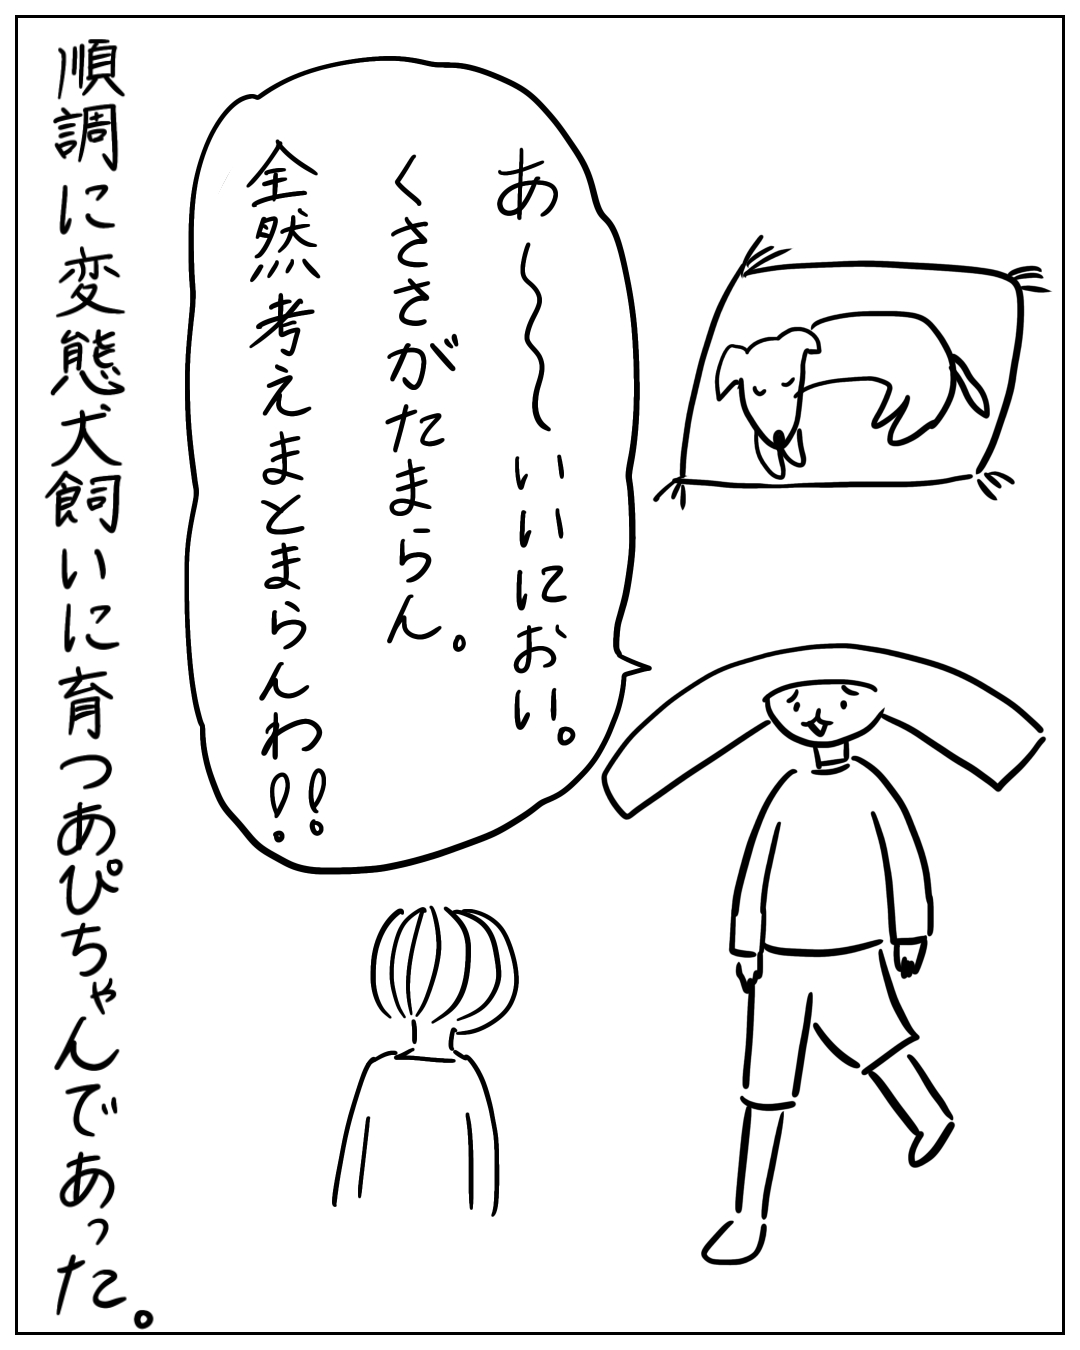 あ〜〜いいにおい。
くささがたまらん。
全然考えまとまらんわ!!
順調に変態犬飼いに育つあぴちゃんであった。